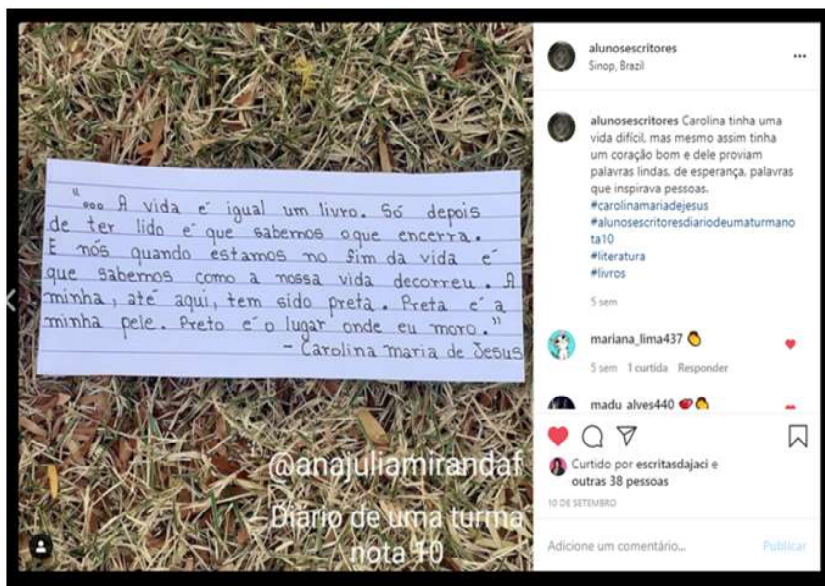 "... A vida é igual um livro. Só depois
de ter lido é que sabemos oque encerra.
E nós quando estamos no fim da vida é
que sabemos como a nossa vida decorreu. A
minha, até aqui, tem sido preta. Preta é a
minha pele. Preto é o lugar onde eu moro."
- Carolina maria de Jesus
@anajuliamirandaf
Diário de uma turma
nota 10
alunosescritores
Sinop, Brazil
alunosescritores Carolina tinha uma
vida difícil, mas mesmo assim tinha
um coração bom e dele proviam
palavras lindas, de esperança, palavras
que inspirava pessoas.
#carolinamariadejesus
#alunosescritoresdiariodeumaturmano
ta10
#literatura
#livros
5 sem
mariana_lima437
5 sem 1 curtida Responder
madu_alves440
Curtido por escritasdajaci e
outras 38 pessoas
10 DE SETEMBRO
Adicione um comentário... Publicar